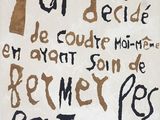 décidé
de coudre moi-même
en ayant soin de
fermer les